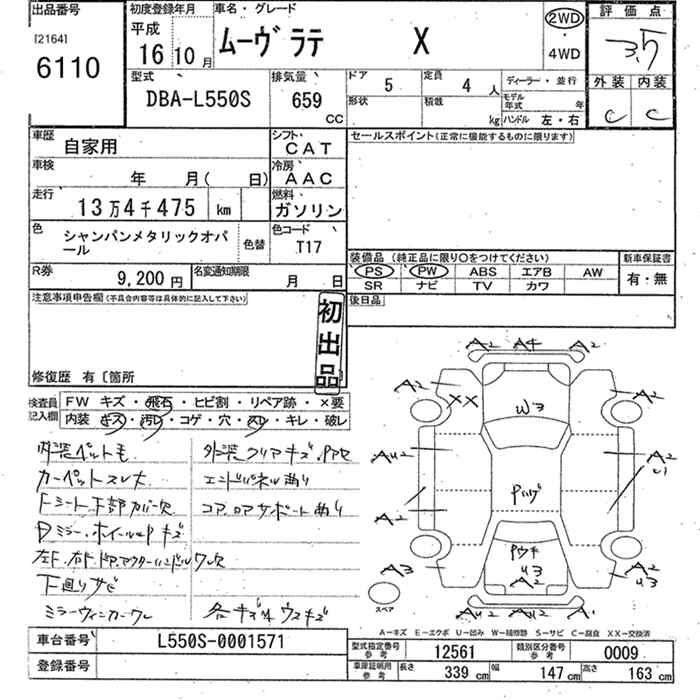 出品番号
[2164]
6110
初度登録年月
平成
16 10月
車名・グレード
ムーヴ ラテ X
2WD
・
4WD
評価点
3.5
外装 内装
C C
型式
DBA-L550S
排気量
659
CC
ドア 5
定員 4 人
ディーラー・並行
形状
積載 kg
モデル年式 年
ハンドル 左・右
車歴
自家用
シフト
CAT
セールスポイント(正常に機能するものに限ります)
車検
年 月( 日)
冷房
AAC
走行
13万4千475 km
燃料
ガソリン
色
シャンパンメタリックオパール
色替
色コード
T17
装備品(純正品に限り○をつけてください)
新車保証書
PS PW ABS エアB AW
有・無
SR ナビ TV カワ
R券
9,200円
名変通知期限
月 日
後日品
注意事項申告欄(不具合内容等は具体的に記入して下さい)
初出品
修復歴 有〔箇所
検査員記入欄
FW キズ・飛石・ヒビ割・リペア跡・×要
内装 キズ・汚レ・コゲ・穴・スレ・キレ・破レ
内装ペット毛
外装クリアキズ、
カーペットスレ大
エンドパネル曲り
Fシート下部カバー欠
コア、ロアサポート曲り
Dミラー・ホイールPキズ
左F、右F、ドアアウターハンドルワレ欠
下回りサビ
ミラーウィンカーワレ
各キズ凹ウスキズ
A2 A4 A2
A2
XX
A2
W3
AU2
A2
U1
A2
A3
U3
A2
A2
U3
AU2 AU2 A1
スペア
A-キズ E-エクボ U-凹み W-補修跡 S-サビ C-腐食 XX-交換済
車台番号
L550S-0001571
登録番号
型式指定番号
参考
12561
類別区分番号
参考
0009
車庫証明用
参考
長さ 339 cm
幅 147 cm
高さ 163 cm